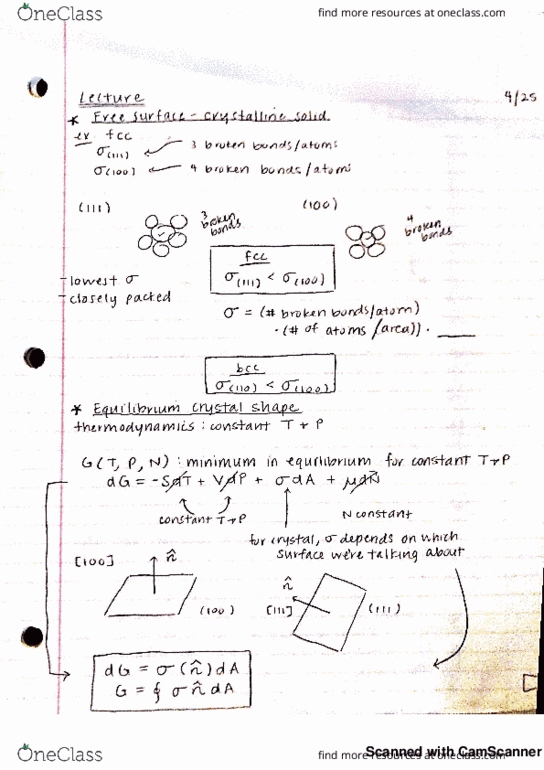 OneClass
find more resources at oneclass.com
Lecture
4/25
* Free surface - crystalline solid.
ex fcc
σ(111) ← 3 broken bonds/atoms
σ(100) ← 4 broken bonds/atoms
(111)
(100)
3 broken bonds
4 broken bonds
fcc
σ(111) < σ(100)
- lowest σ
- closely packed
σ = (# broken bonds/atom)
· (# of atoms /area)) · ____
bcc
σ(110) < σ(100)
* Equilibrium crystal shape
thermodynamics: constant T + P
G(T, P, N) : minimum in equilibrium for constant T+P
dG = -SdT + VdP + σdA + μdN
constant T+P
N constant
for crystal, σ depends on which
surface we're talking about
[100]
n̂
(100)
n̂
[111]
(111)
dG = σ(n̂)dA
G = ∮ σ n̂ dA
OneClass
find more resources at oneclass.com
Scanned with CamScanner